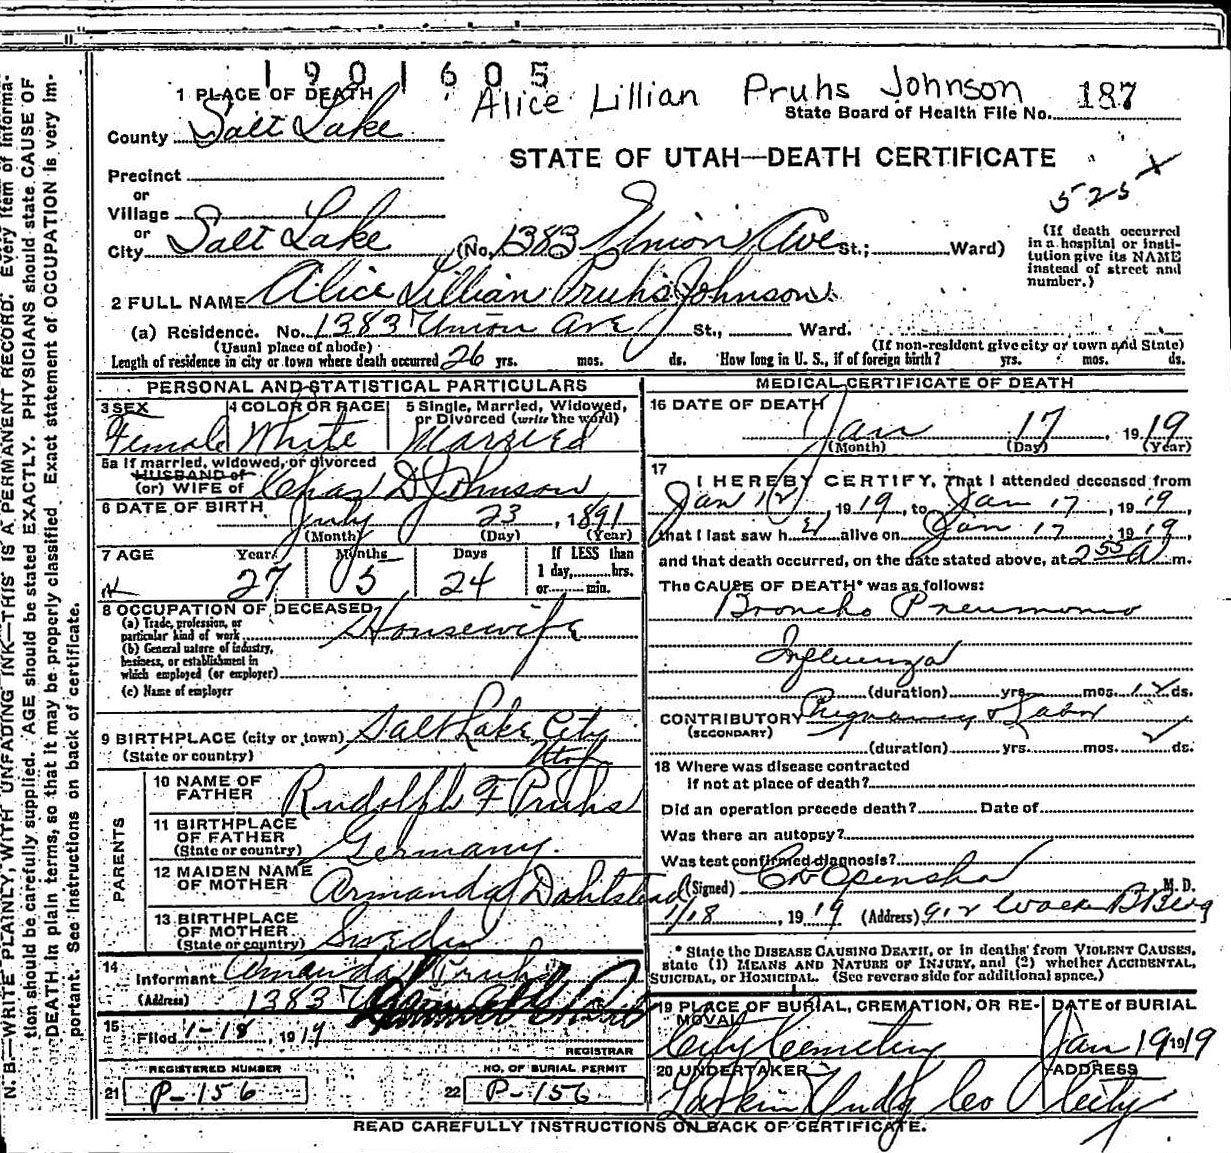 1901605
Alice Lillian Pruhs Johnson
1 PLACE OF DEATH
State Board of Health File No. 187
County Salt Lake
STATE OF UTAH—DEATH CERTIFICATE
Precinct
or
Village
525
or
City Salt Lake (No. 1383 Union Ave St.; Ward)
(If death occurred in a hospital or insti-
tution give its NAME
instead of street and
number.)
2 FULL NAME Alice Lillian Pruhs Johnson
(a) Residence. No. 1383 Union Ave St., Ward.
(Usual place of abode) (If non-resident give city or town and State)
Length of residence in city or town where death occurred 26 yrs. mos. ds. How long in U. S., if of foreign birth? yrs. mos. ds.
PERSONAL AND STATISTICAL PARTICULARS
3 SEX 4 COLOR OR RACE 5 Single, Married, Widowed,
or Divorced (write the word)
Female White Married
5a If married, widowed, or divorced
HUSBAND of
(or) WIFE of Chas D Johnson
6 DATE OF BIRTH July 23, 1891
(Month) (Day) (Year)
7 AGE Years Months Days If LESS than
27 5 24 1 day, hrs.
or min.
8 OCCUPATION OF DECEASED
(a) Trade, profession, or
particular kind of work Housewife
(b) General nature of industry,
business, or establishment in
which employed (or employer)
(c) Name of employer
9 BIRTHPLACE (city or town) Salt Lake City
(State or country) Utah
PARENTS
10 NAME OF
FATHER Rudolph F Pruhs
11 BIRTHPLACE
OF FATHER
(State or country) Germany.
12 MAIDEN NAME
OF MOTHER Armanda Dahlstead
13 BIRTHPLACE
OF MOTHER
(State or country) Sweden
14
Informant Amanda Pruhs
(Address) 1383
15
Filed 1-18, 1919
REGISTRAR
REGISTERED NUMBER NO. OF BURIAL PERMIT
21 P-156 22 P-156
MEDICAL CERTIFICATE OF DEATH
16 DATE OF DEATH
Jan 17, 1919
(Month) (Day) (Year)
17
I HEREBY CERTIFY, That I attended deceased from
Jan 12, 1919, to Jan 17, 1919,
that I last saw h er alive on Jan 17, 1919,
and that death occurred, on the date stated above, at 2 55 A m.
The CAUSE OF DEATH* was as follows:
Broncho Pneumonia
Influenza
(duration) yrs. mos. 12 ds.
CONTRIBUTORY Pregnancy & Labor
(SECONDARY)
(duration) yrs. mos. ds.
18 Where was disease contracted
if not at place of death?
Did an operation precede death? Date of
Was there an autopsy?
Was test confirmed diagnosis?
(Signed) Openshaw M. D.
1/18, 1919 (Address) 912 Walker B Bldg
* State the DISEASE CAUSING DEATH, or in deaths from VIOLENT CAUSES,
state (1) MEANS AND NATURE OF INJURY, and (2) whether ACCIDENTAL,
SUICIDAL, or HOMICIDAL. (See reverse side for additional space.)
19 PLACE OF BURIAL, CREMATION, OR RE-
MOVAL DATE of BURIAL
City Cemetery Jan 19 1919
20 UNDERTAKER ADDRESS
Larkin Undg Co City
READ CAREFULLY INSTRUCTIONS ON BACK OF CERTIFICATE.
N. B.—WRITE PLAINLY, WITH UNFADING INK—THIS IS A PERMANENT RECORD. Every item of informa-
tion should be carefully supplied. AGE should be stated EXACTLY. PHYSICIANS should state CAUSE OF
DEATH in plain terms, so that it may be properly classified. Exact statement of OCCUPATION is very im-
portant. See instructions on back of certificate.